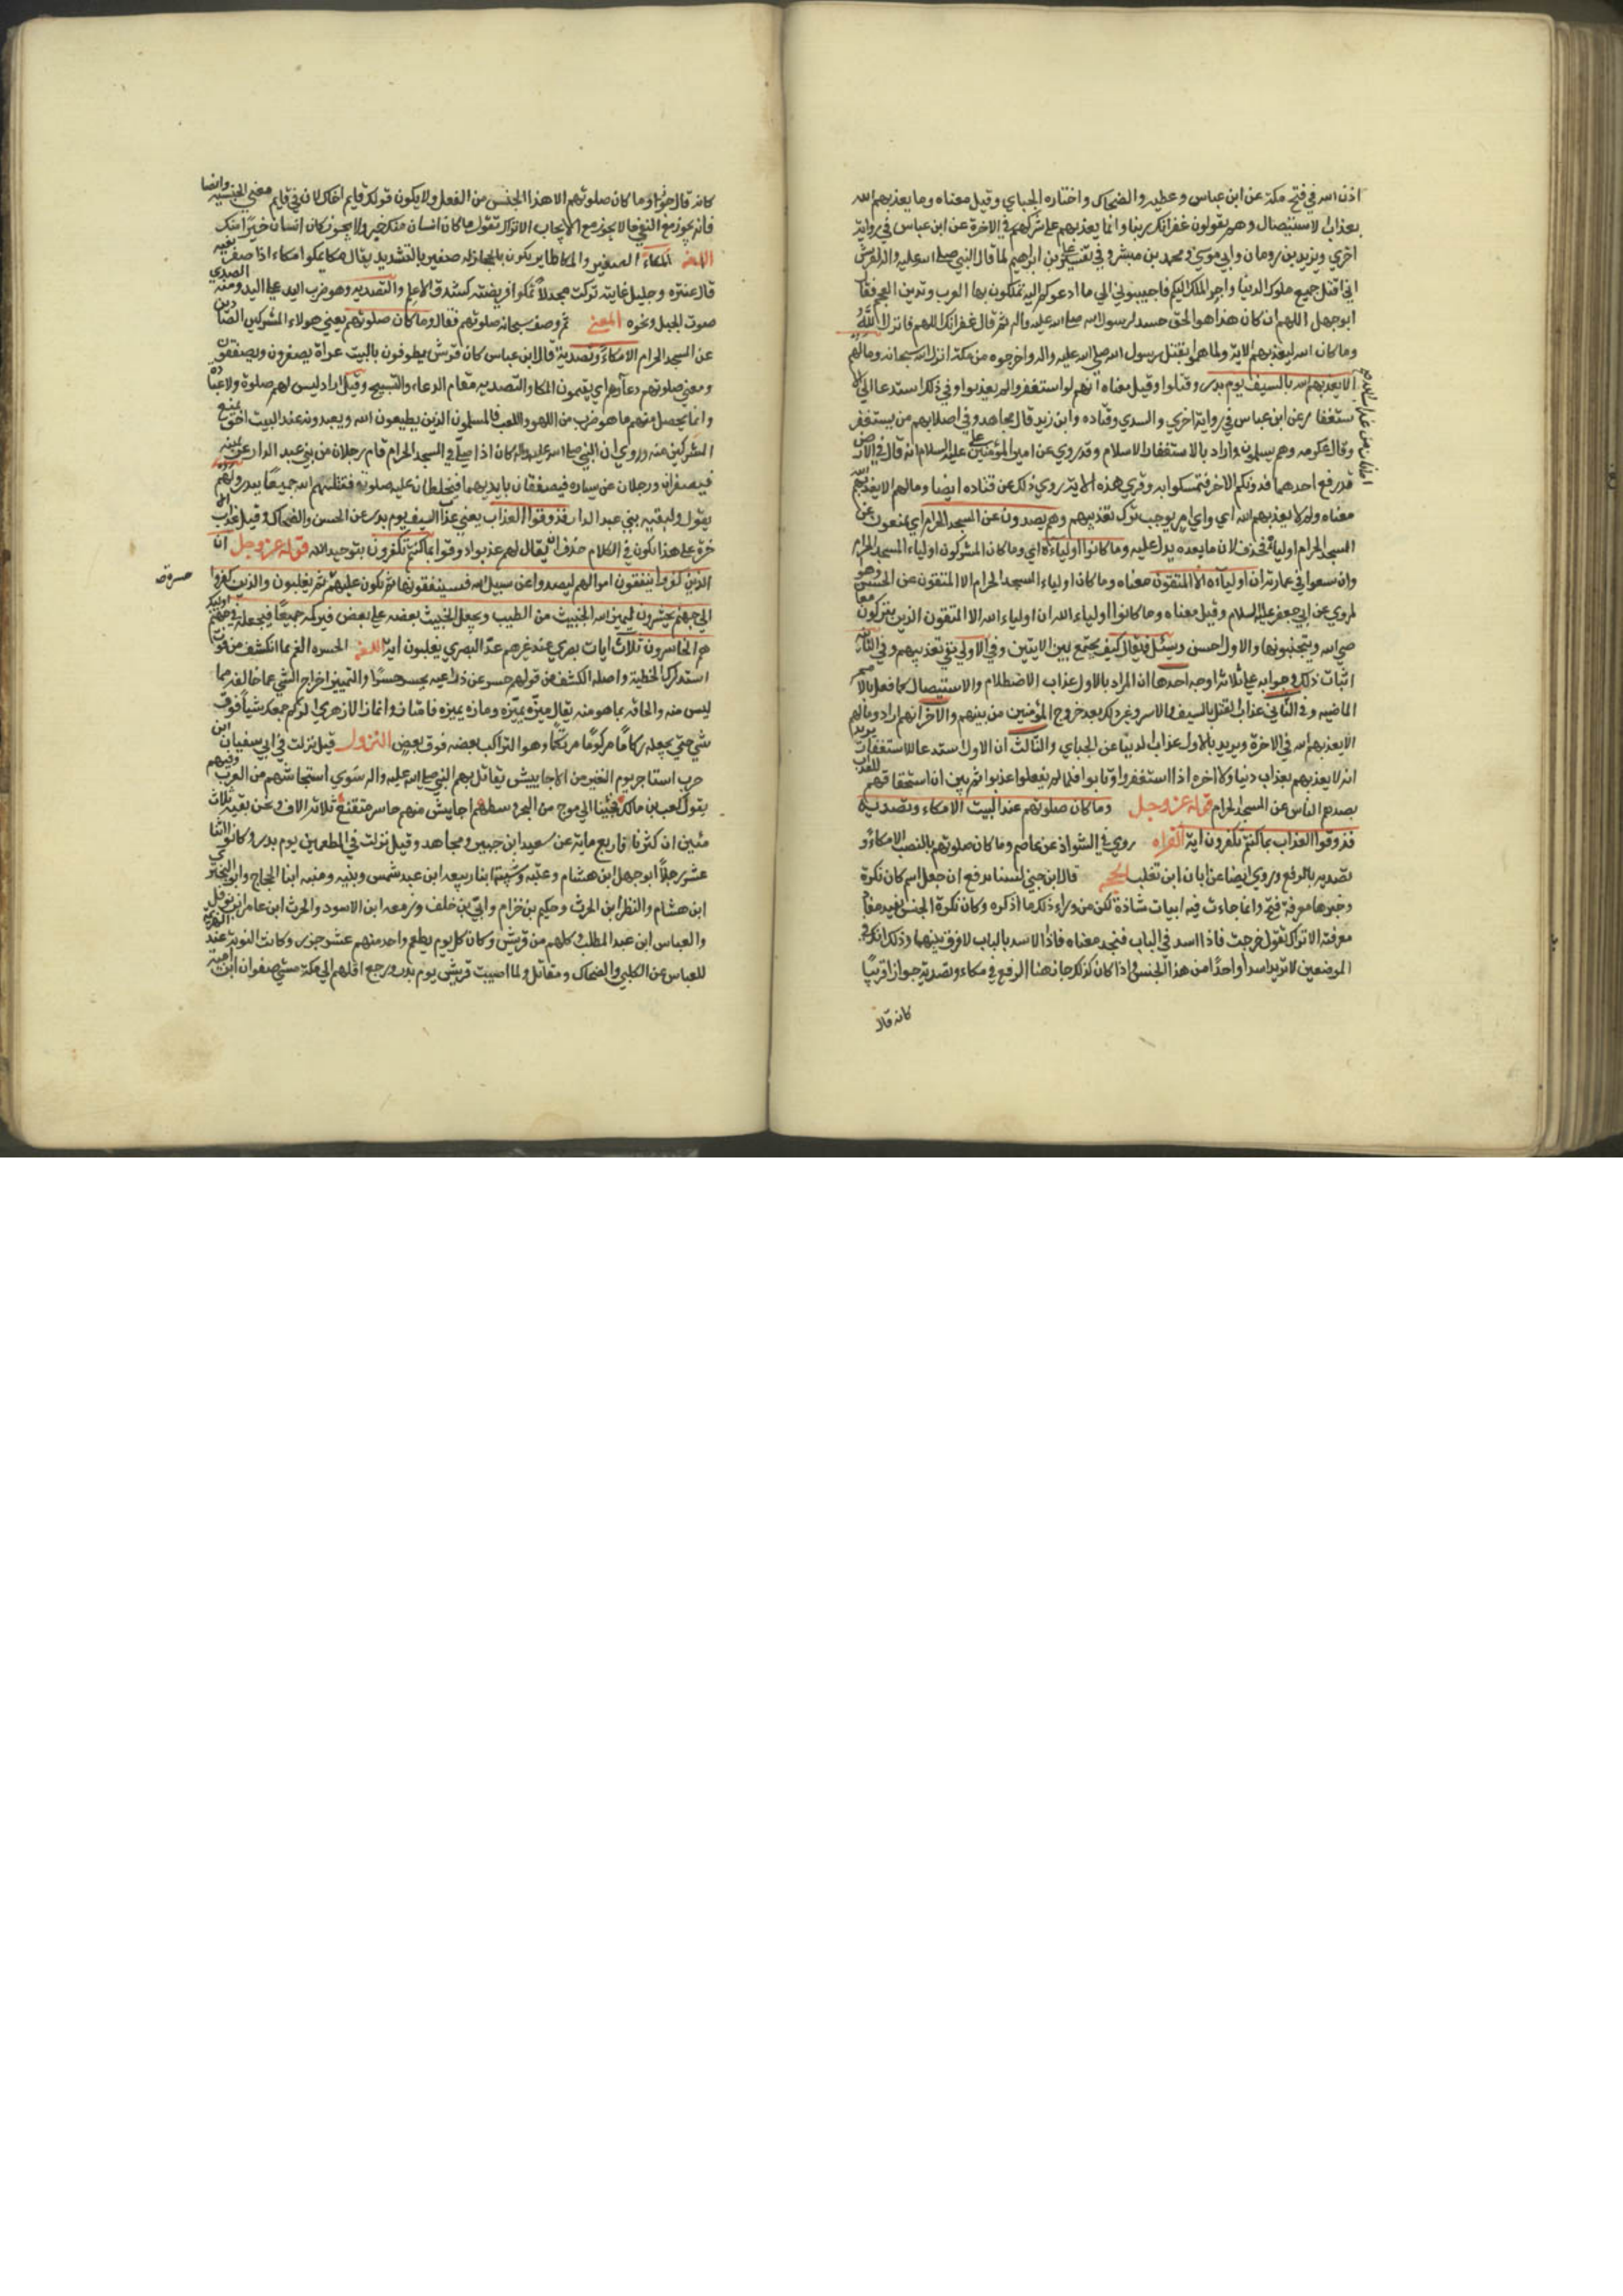 اذن الله في فتح مكة عن ابن عباس وعطيه والضحاك واختاره الجبايي وقيل معناه وما يعذبهم الله
بعذاب الاستيصال وهم يقولون غفرانك ربنا وانما يعذبهم على شركهم في الاخرة عن ابن عباس في رواية
اخري ويزيد بن رومان وابي موسي ومحمد بن مبشر وفي تفسير علي بن ابراهيم لما قال النبي صلى الله عليه واله لقريش
اني اقتل جميع ملوك الدنيا واجر الملك اليكم فاجيبوني الي ما ادعوكم اليه تملكون بها العرب وتدين لكم العجم فقال
ابو جهل اللهم ان كان هذا هو الحق حسدا لرسول الله صلى الله عليه واله ثم قال غفرانك اللهم فانزل الله
وما كان الله ليعذبهم الاية ولما هموا بقتل رسول الله صلى الله عليه واله واخرجوه من مكة انزل الله سبحانه ومالهم
الا يعذبهم الله بالسيف يوم بدر وقتلوا وقيل معناه انهم لو استغفروا لم يعذبوا وفي ذلك استدعا الي الا
ستغفار عن ابن عباس في رواية اخري والسدي وقتاده وابن زيد قال مجاهد وفي اصلابهم من يستغفر
وقال عكرمه وهم يسلمون واراد بالاستغفار الاسلام وقد روي عن امير المؤمنين علي عليه السلام انه قال في الارض
قد رفع احدهما فدونكم الاخر فتمسكوا به وقري هذه الاية روي ذلك عن قتاده ايضا ومالهم الا يعذبهم الله
معناه ولم لا يعذبهم الله اي واي امر يوجب ترك تعذيبهم وهم يصدون عن المسجد الحرام اي يمنعون عن
المسجد الحرام اولياءه فحذف لان ما بعده يدل عليه وما كانوا اولياءه اي وما كان المشركون اولياء المسجد الحرام
وان سعوا في عمارته ان اولياءه الا المتقون معناه وما كان اولياء المسجد الحرام الا المتقون عن الحسن وهو
لمروي عن ابي جعفر عليه السلام وقيل معناه وما كانوا اولياء الله ان اولياء الله الا المتقون الذين يتركون معا
صي الله ويتجنبونها والاول احسن ويسئل فيقال كيف يجمع بين الايتين وفي الاولي نفي تعذيبهم وفي الثانيه
اثبات ذلك وجوابه علي ثلاثة اوجه احدها ان المراد بالاول عذاب الاضطلام والاستيصال كما فعل بالامم
الماضيه وفي الثاني عذاب القتل بالسيف والاسر وغير ذلك بعد خروج المؤمنين من بينهم والاخر انهم اراد ومالهم
الا يعذبهم الله في الاخرة ويريد بالاول عذاب الدنيا عن الجبايي والثالث ان الاول استدعا للاستغفار يريد
انه لا يعذبهم بعذاب دنيا ولا اخره اذا استغفروا وتابوا فلما لم يفعلوا عذبوا ثم بين ان استحقاقهم للعذاب
بصدهم الناس عن المسجد الحرام قوله عز وجل وما كان صلوتهم عند البيت الا مكاء وتصدية
فذوقوا العذاب بما كنتم تكفرون اية القراه روي في الشواذ عن عاصم وما كان صلوتهم بالنصب الا مكاء و
تصديه بالرفع وروي ايضا عن ابان ابن تغلب الحجه قال ابن جني لسنا ندفع ان جعل اسم كان نكرة
وخبرها معرفة قبيح وانما جاءت فيه ابيات شاذة لكن من وراء ذلك ما اذكره وكان نكرة الجنس تفيد مفاد
معرفته الا ترك تقول خرجت فاذا اسد في الباب فتجد معناه فاذا الاسد بالباب لا فرق بينهما وذلك انك في
الموضعين لا تريد اسدا واحدا من هذا الجنس واذا كان كذلك جاز هنا الرفع في مكاء وتصدية جوازا قريبا
كانه قال
كانه قال وما كان صلوتهم الا هذا الجنس من الفعل ولا يكون قولك قايم اخاك لان في قايم معني الجنسيه وايضا
فانه يجوز مع النفي ما لا يجوز مع الايجاب الا تراك تقول ما كان انسان منك خير ولا يجوز كان انسان خيرا منك
اللغه المكاء الصفير والمكا طاير يكون بالحجاز له صفير بالتشديد يقال مكا يمكوا مكاء اذا صفر بفيه
قال عنتره وحليل غانية تركت مجدلا تمكوا فريضته كشدق الاعلم والتصديه وهو ضرب اليد علي اليد ومنه الصدي
صوت الجبل ونحوه المعني ثم وصف سبحانه صلوتهم فقال وما كان صلوتهم يعني هولاء المشركين الصادين
عن المسجد الحرام الا مكاء وتصدية قال ابن عباس كان قريش يطوفون بالبيت عراة يصفرون ويصفقون
ومعني صلوتهم دعاوهم اي يقيمون المكا والتصديه مقام الدعاء والتسبيح وقيل اراد ليس لهم صلوة ولا عبادة
وانما يحصل منهم ما هو ضرب من اللهو واللعب فالمسلمون الذين يطيعون الله ويعبدونه عند البيت احق بمنع
المشركين منه وروي ان النبي صلى الله عليه واله كان اذا صلي في المسجد الحرام قام رجلان من بني عبد الدار عن يمينه
فيصفران ورجلان عن يساره فيصفقان بايديهما فيخلطان عليه صلوته فقتلهم الله جميعا ببدر ولهم
يقول ولبقيه بني عبد الدار فذوقوا العذاب يعني عذاب السيف يوم بدر عن الحسن والضحاك وقيل عذاب الا
خرة علي هذا يكون في الكلام حذف اي يقال لهم عذبوا وذوقوا بما كنتم تكفرون بتوحيد الله قوله عز وجل ان
الذين كفروا ينفقون اموالهم ليصدوا عن سبيل الله فسينفقونها ثم تكون عليهم ثم يغلبون والذين كفروا
حسرة
الي جهنم يحشرون ليميز الله الخبيث من الطيب ويجعل الخبيث بعضه علي بعض فيركمه جميعا فيجعله في جهنم اولئك
هم الخاسرون ثلاث ايات بصري عند غيرهم عد البصري يغلبون اية اللغه الحسره الغم بما انكشف من فوت
استدراك الخطية واصله الكشف من قولهم حسر عن ذراعيه يحسر حسرا والتمييز اخراج الشي عما خالفه مما
ليس منه والحاقه بما هو منه يقال ميزه يميزه ومازه يميزه فامتاز وانماز الازهري الركم جمعك شيأ فوق
شي حتي يجعله ركاما مركوما مرتكما وهو التراكب بعضه فوق بعض النزول قيل نزلت في ابي سفيان ابن
حرب استاجر يوم الفين من الاحابيش يقاتل بهم النبي صلى الله عليه واله سوي استجاشهم من العرب وفيهم
يقول كعب بن مالك فجئنا الي موج من البحر وسطهم احابيش منهم حاسر ومقنع ثلاثة الاف ونحن بقية ثلاث
مئين ان كثرنا فاربع ماية عن سعيد ابن جبير ومجاهد وقيل نزلت في المطعمين يوم بدر وكانوا اثنا
عشر رجلا ابو جهل ابن هشام وعتبه وشيبه ابنا ربيعه ابن عبد شمس ونبيه ومنبه ابنا الحجاج وابو البختري
ابن هشام والنظر ابن الحرث وحكيم بن حزام وابي بن خلف وزمعه ابن الاسود والحرث ابن عامر ابن نوفل
والعباس ابن عبد المطلب وكلهم من قريش وكان كل يوم يطعم واحد منهم عشر جزر وكانت النوبة عند
للعباس عن الكلبي والضحاك ومقاتل ولما اصيبت قريش يوم بدر ورجع اقلهم الي مكة مشي صفوان ابن امية